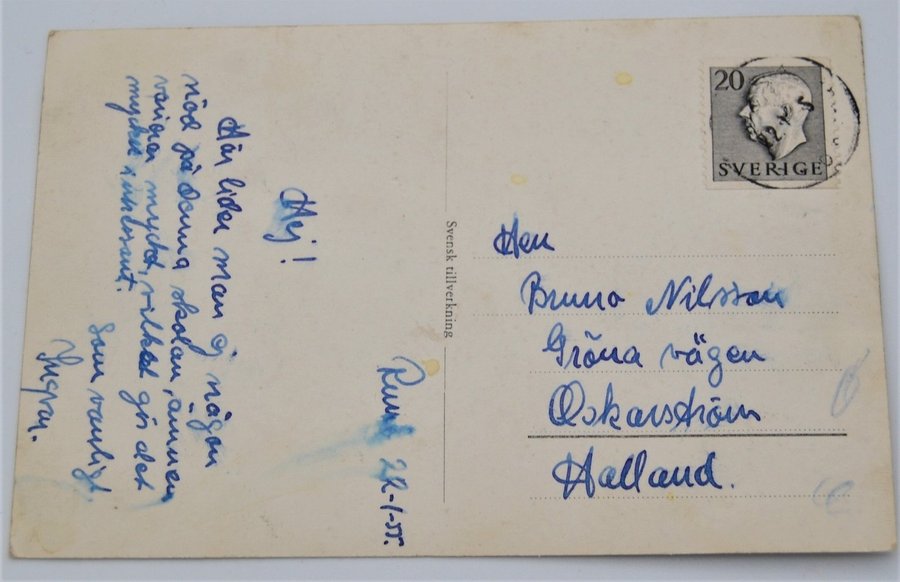 22-1-55.
Hej!
Här lider man ej någon
nöd på denna skolan, ämnen
varierar mycket, vilket gör det
mycket intressant.
Som vanligt.
Ingvar.
Svensk tillverkning
20
SVERIGE
Herr
Bruno Nilsson
Gröna vägen
Oskarström
Halland.